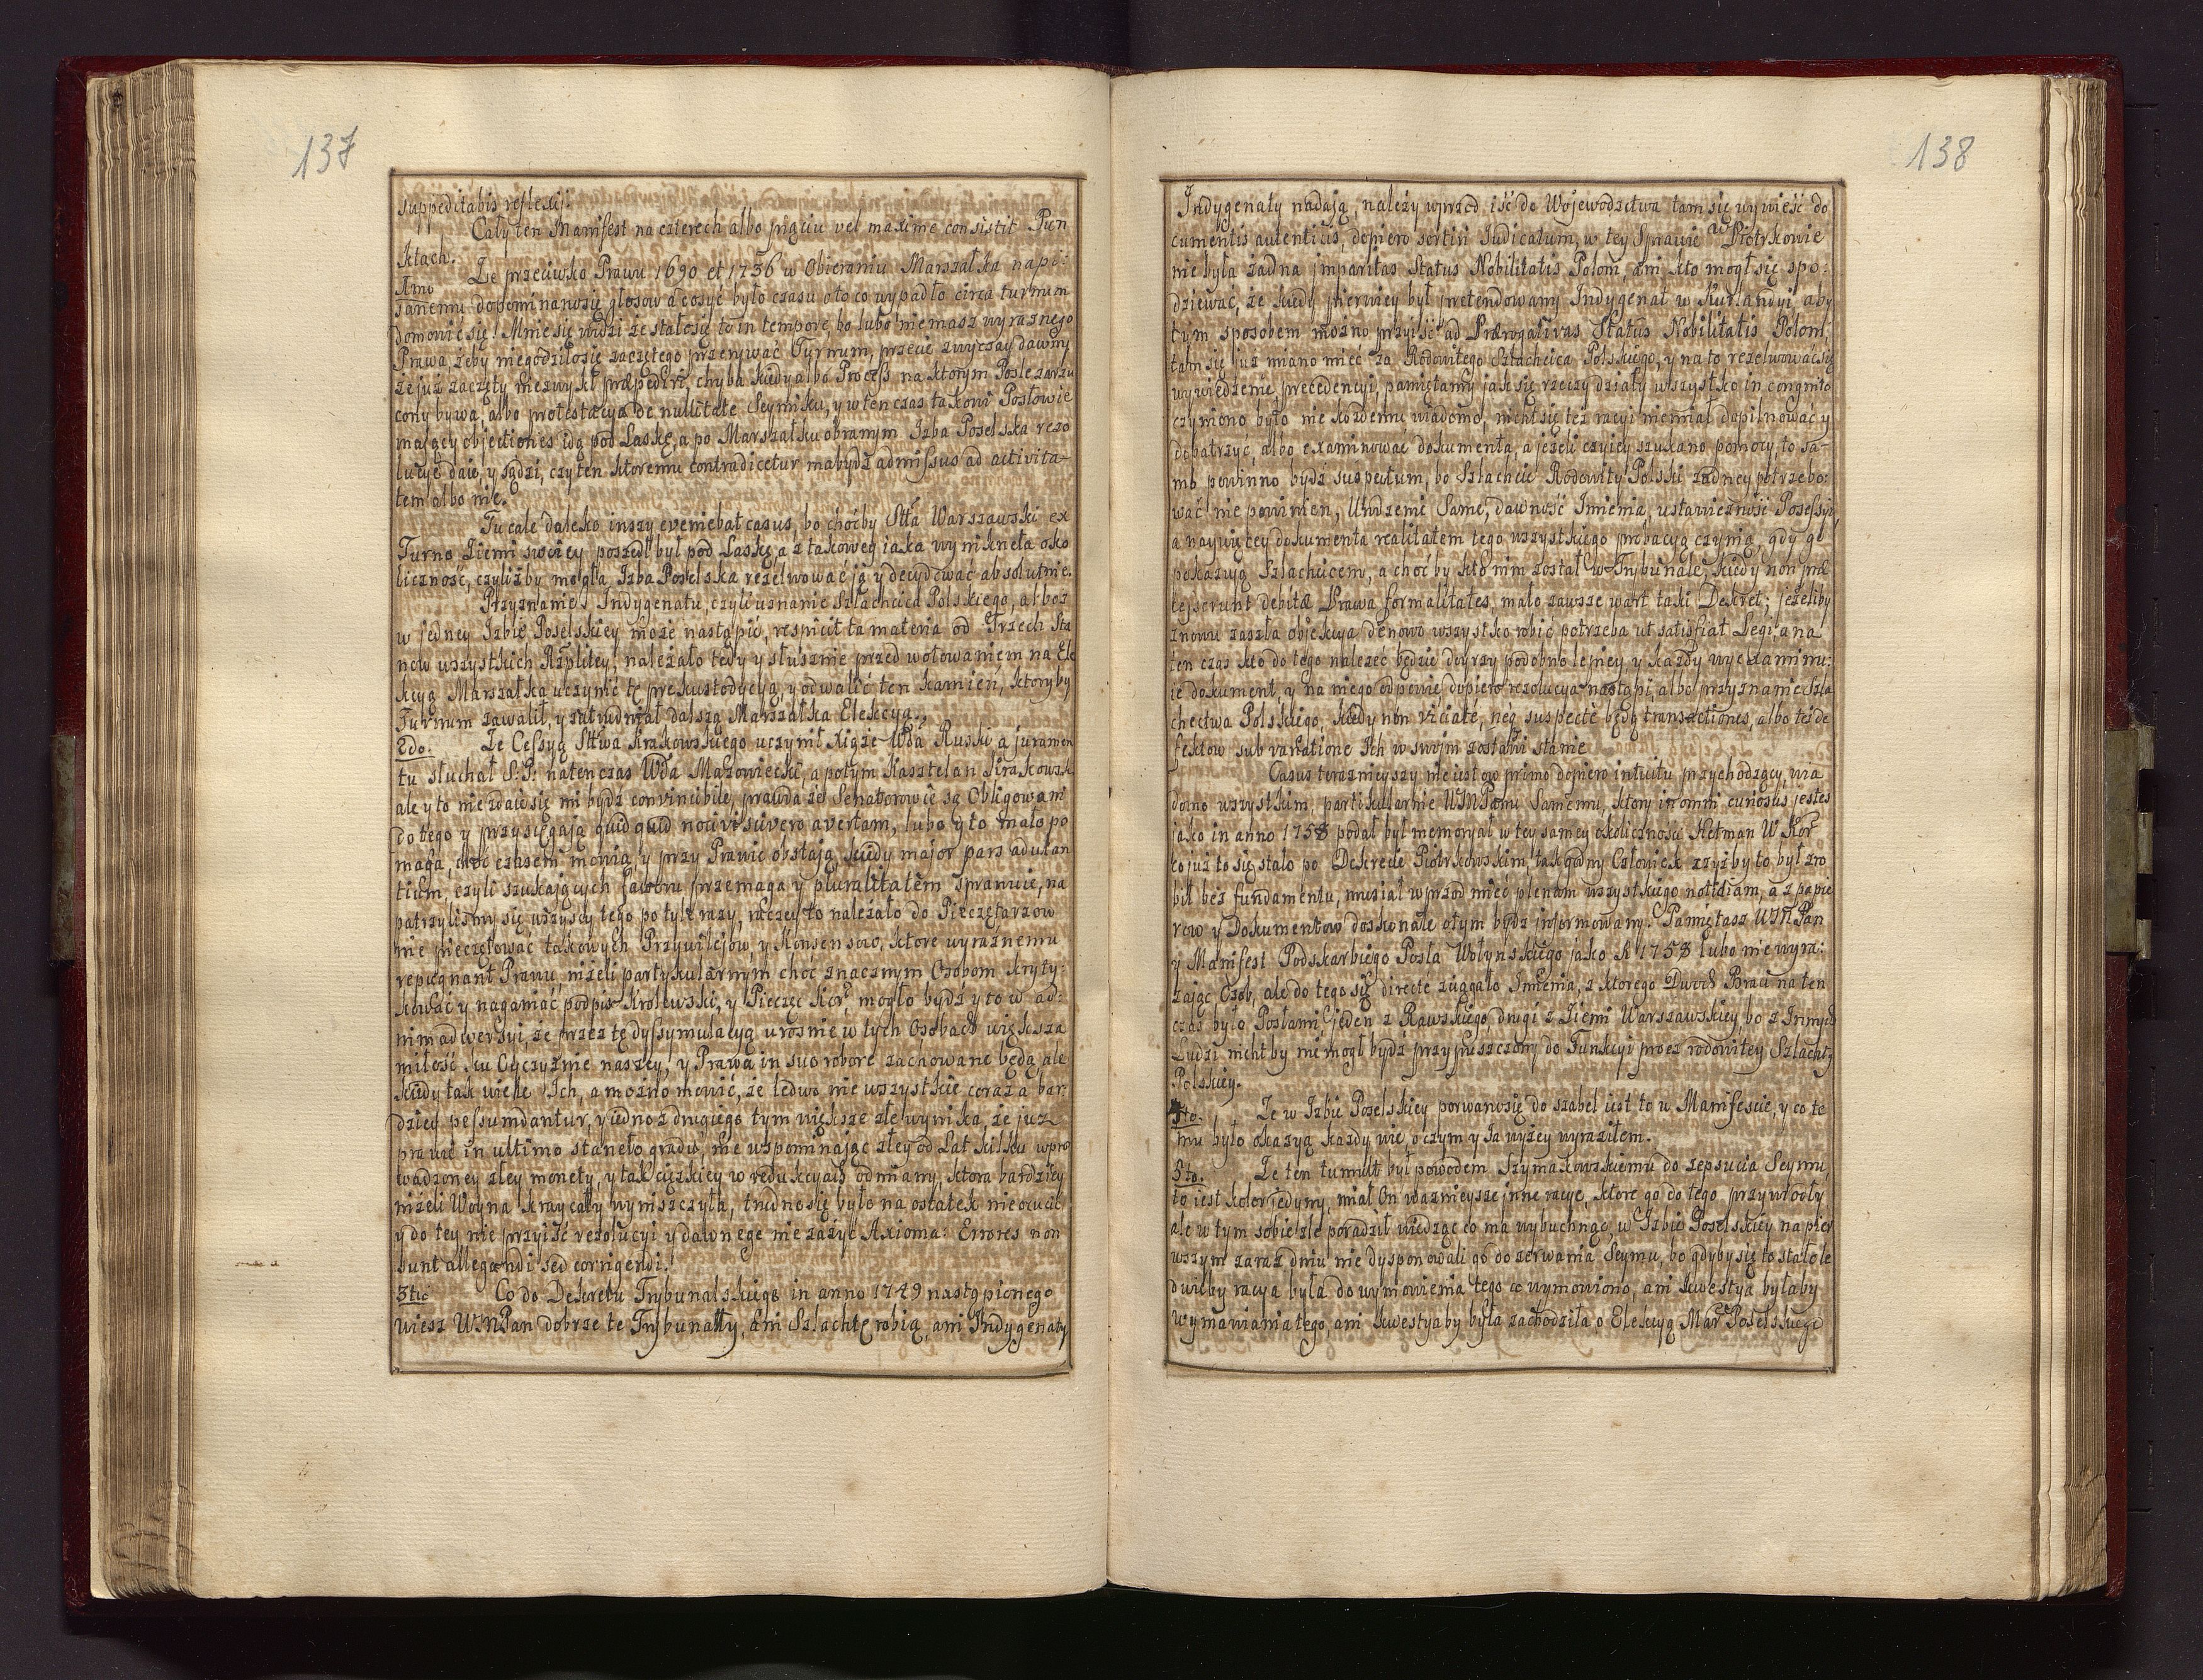 137
suppeditabis reflexij.
Cały ten Manifest na czterech albo pięciu vel maxime consistit Pun
ktach.
1mo Że przeciwko Prawu 1690 et 1736 w Obieraniu Marszałka napi:
sanemu dopominano się głosow a dosyć było czasu oto co wypadło circa turnum
domowić się! Mnie się widzi że stało się to in tempore, bo lubo niemasz wyraznego
Prawa żeby niegodziło się zaczętego przerywać Turnum, przecie zwyczay dawny
że już zaczęty niezwykł præpediri, chyba kiedy albo Process na ktorym Posle zarzu
cony bywa, albo protestacya de nullitate Seymiku, y wten czas takowi Posłowie
maiący objectiones idą pod Laskę, a po Marszałku obranym Izba Poselska rezo
lucyę daie, y sądzi, czy ten ktoremu contradicetur ma bydź admissus ad activita-
tem albo nie.
Tu cale daleko inszy eveniebat casus, bo choćby Stta Warszawski ex
Turno Ziemi swoiey poszedł był pod Laskę, a z takowey iaka wynikneła oko
liczność, czyliżby mogła Izba Poselska rezolwować ią y decydować absolutnie.
Przyznanie Indygenatu, czyli uznanie Szlachcica Polskiego, alboż
w jedney Izbie Poselskiey może nastąpić, respicit ta materia od Trzech Sta
now wszystkich Rzplitey, należało tedy y słusznie przed wotowaniem na Ele
kcyą Marszałka uczynić tę prekustodycyą, y odwalić ten kamień, ktory by
Turnum zawalił, y zatrudniał dalszą Marszałka Elekcyą.
2do. Że Cessyą Sttwa Krakowskiego uczynił Xiąże Wda Ruski, a juramen
tu słuchał S: P: natenczas Wda Mazowiecki, a potym Kasztelan Krakowski
ale y to nie zdaie się mi bydź convincibile, prawda że Senatorowie są Obligowani
do tego y przysięgają quid quid nocivi scivero avertam, lubo y to mało po
maga, choć czasem mowią, y przy Prawie obstają, kiedy major pars adulan
tium, czyli szukających faworu przemaga y pluralitatem sprawuie, na
patrzyliśmy się wszyscy tego po tyle razy, raczey to należało do Pieczętarzow
nie pieczętować takowych Przywilejow, y Konsensow, ktore wyraźnemu
repugnant Prawu, niżeli partykularnym choć znacznym Osobom kryty:
kować y naganiać podpis Krolewski, y Pieczęć Kor: mogło bydź y to w ad:
nimadwersyi, że przez tę dyssymulacyą urośnie w tych Osobach większa
miłość ku Oyczyźnie naszey, y Prawa in suo robore zachowane będą, ale
kiedy tak wiele Ich, a można mowić, że ledwo nie wszystkie coraz a bar:
dziey pessumdantur, y iedno z drugiego tym większe złe wynika, że już
prawie in ultimo staneło gradu, nie wspominając złey od Lat kilku wpro
wadzoney złey monety, y tak ciężkiey w redukcyach odmiany, ktora bardziey
niżeli Woyna kray cały wyniszczyła, trudno się było na ostatek nie ocucić
y do tey nie przyiść rezolucyi y dawnego nie zażyć Axioma: Errores non
sunt allegandi sed corrigendi.
3tio Co do Dekretu Trybunalskiego in anno 1749 nastąpionego
wiesz WMPan dobrze że Trybunały, ani Szlachtę robią, ani Indygenaty
138
Indygenaty nadają, należy wprzod iść do Wojewodztwa tam się wywieść do
cumentis autenticis, dopiero sortiri Iudicatum, w tey Sprawie w Piotrkowie
nie była żadna imparitas Status Nobilitatis Polon, ani kto mogł się spo:
dziewać, że kiedy pierwiey był pretendowany Indygenat w Kurlandyi, aby
tym sposobem można przyiść ad Prærogativas Status Nobilitatis Polon,
tam się już miano mieć za Rodowitego Szlachcica Polskiego, y na to rezolwować się
wywiedzenie precedencyi, pamiętamy jak się rzeczy działy wszystko in congnito
czyniono było nie każdemu wiadomo, nicht się też racyi niemiał dopilnować y
dopatrzyć, albo examinować dokumenta, a jeżeli czyiey szukano pomocy, to sa-
mo powinno bydź suspectum, bo Szlachcic Rodowity Polski żadney potrzebo:
wać nie powinien, Urodzenie Same, dawność Imienia, ustawiczność Possessyi,
a naywięcey dokumenta realitatem tego wszystkiego probacyą czynią, gdy go
pokazują Szlachcicem, a choć by kto nim został w Trybunale, kiedy non præ
cesserunt debitæ Prawa formalitates, mało zawsze wart taki Dekret; jeżeliby
znowu zaszła objekcya denovo wszystko robić potrzeba ut satisfiat Legi, a na
ten czas kto do tego należeć będzie doyrzy podobno lepiey y każdy wyexaminu:
ie dokument, y na niego odpowie, dopiero rezolucya nastąpi, albo przyznanie Szla
chectwa Polskiego, kiedy non viciate, neq suspecte będą transactiones, albo też de
fektow sub variatione Ich w swoim zostawi stanie.
Casus teraznieyszy nie iest ow primo dopiero intuitu przychodzący, wia
domo wszystkim, partikularnie WMPanu Samemu, ktory in omni curiosus jesteś
jako in anno 1758 podał był memoryał w tey samey okoliczności Hetman W Kor
co już to się stało po Dekrecie Piotrkowskim, tak godny Człowiek czyżby to był zro
bił bez fundamentu, musiał wprzod mieć plenam wszystkiego notitiam, a z papie
row y Dokumentow doskonale o tym bydź informowany. Pamiętasz WMPan
y Manifest Podskarbiego Posła Wołynskiego jako R 1758 lubo nie wyra:
żając Osob, ale do tego się directe ściągało Imienia, z ktorego Dwoch Braci na ten
czas było Posłami jeden z Rawskiego, drugi z Ziemi Warszawskiey, bo z Innych
Ludzi nicht by nie mogł bydź przypuszczony do Funkcyi procz rodowitey Szlachty
Polskiey.
4to. Że w Izbie Poselskiey porwano się do szabel iest to w Manifescie, y co te
mu było okazyą każdy wie, o czym y Ja wyżey wyraziłem.
5to. Że ten tumult był powodem Szymakowskiemu do zepsucia Seymu,
to iest kolor jedyny, miał On ważnieysze inne racye, ktore go do tego przywiodły
ale w tym sobie źle poradził wiedząc co ma wybuchnąć w Izbie Poselskiey na pier
wszym zaraz dniu nie dysponowali go do zerwania Seymu, bo gdyby się to stało le
dwieby racya była do wymowienia tego co wymowiono, ani kwestya byłaby
wymawiania tego, ani kwestyaby była zachodziła o Elekcyą Mar: Poselskiego